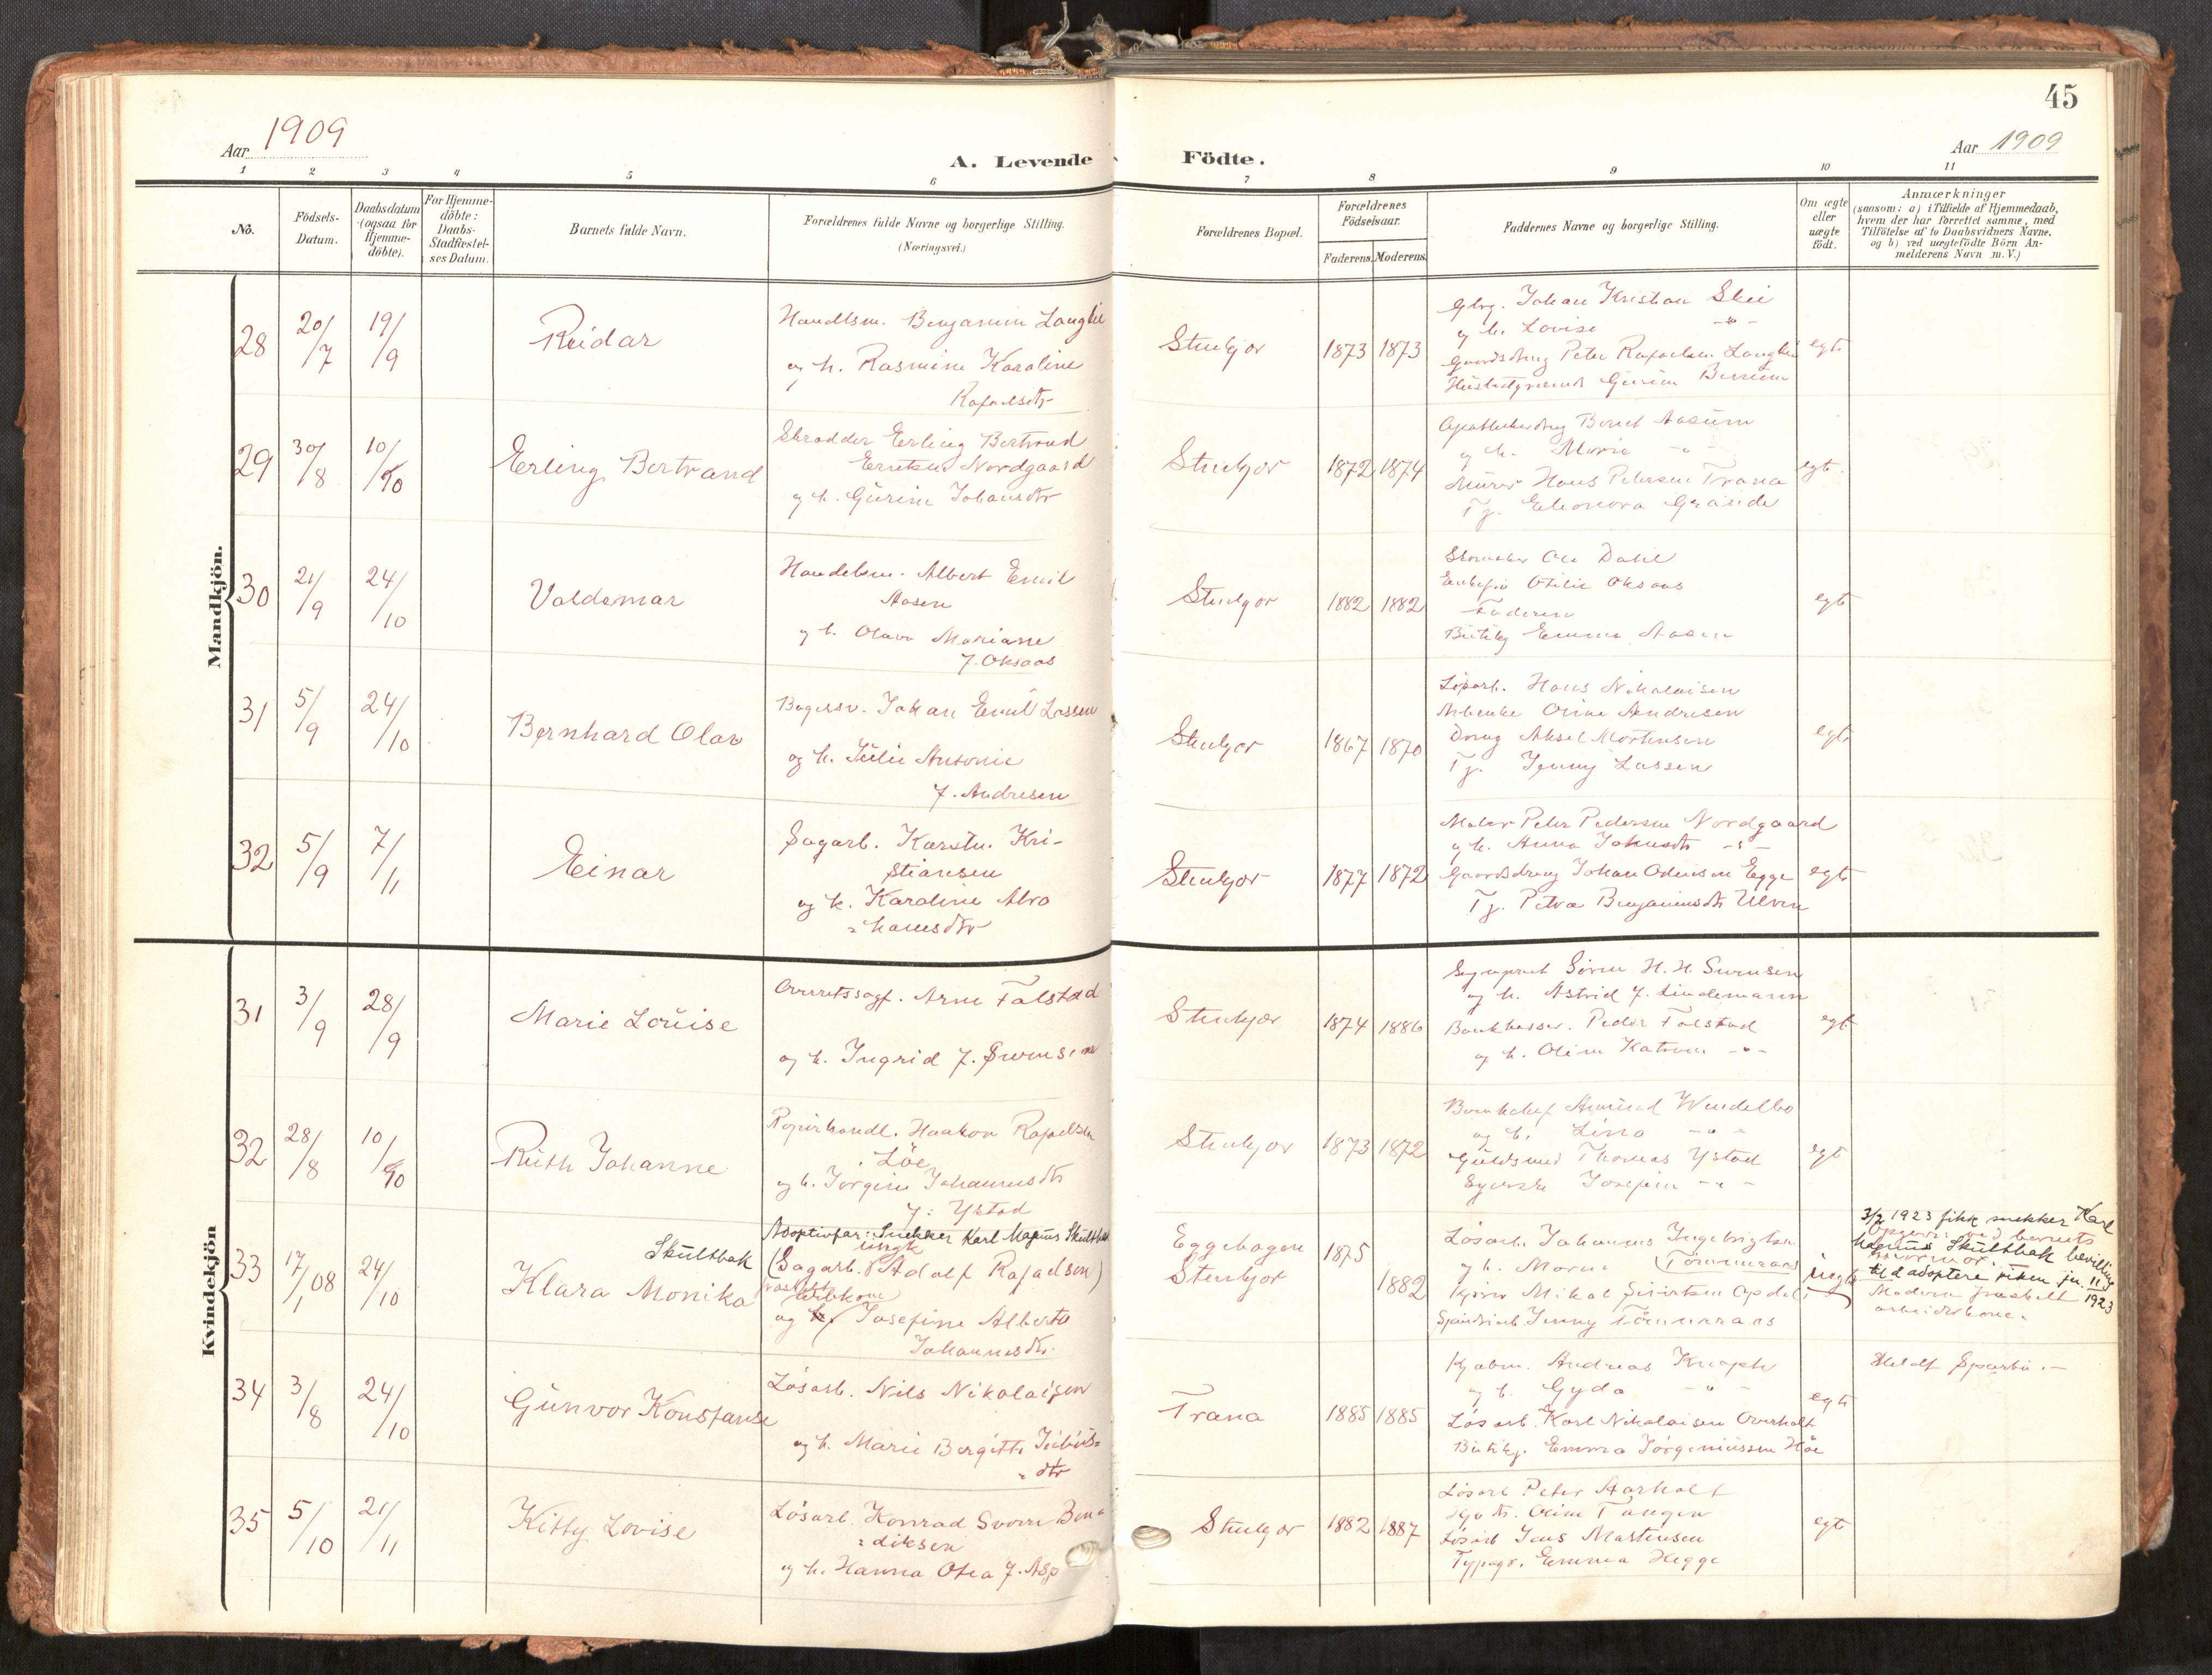 45
Aar 1909
A. Levende
Födte.
Aar 1909
1 2 3 4 5 6 7 8 9 10 11
No.
Födsels-
Datum.
Daabsdatum
(ogsaa for
Hjemme-
döbte).
For Hjemme-
döbte:
Daabs-
Stadfæstel-
ses Datum.
Barnets fulde Navn.
Forældrenes fulde Navne og borgerlige Stilling.
(Næringsvei.)
Forældrenes Bopæl.
Forældrenes
Födselsaar.
Faderens. Moderens.
Faddernes Navne og borgerlige Stilling.
Om ægte
eller
uægte
födt.
Anmærkninger
(saasom: a) i Tilfælde af Hjemmedaab,
hvem der har forrettet samme, med
Tilföielse af to Daabsvidners Navne,
og b) ved uægtefödte Börn An-
melderens Navn m.V.)
Mandkjön.
28
20/7
19/9
Reidar
Handlsm. Benjamin Langlie
og h. Rasmine Karoline
Rafaelsdtr
Stenkjær
1873 1873
Gbrg. Johan Kristian Skei
og h. Lovise -"-
Gaardsdreng Peter Rafaelsen
egte
29
30/8
10/10
Erling Bertrand
Skrædder Erling Bertrand
Nordgaard
og h. Gurine Johansdtr
Stenkjær
1872 1874
Aasum
og h. Marie -"-
Murer Hans Petersen Trana
Tj. Eleonora
egte
30
21/9
24/10
Valdemar
Handelsm. Albert Emil
Aasen
og h. Olava Mariane
f. Oksaas
Stenkjær
1882 1882
Skomaker Ole Dahl
Otilie Oksaas
Faderen
Emma Aasen
egte
31
5/9
24/10
Bernhard Olav
Bagersv. Johan Emil Lassen
og h. Julie Antonie
f. Andresen
Stenkjær
1867 1870
Løsarb. Hans Nikolaisen
Oline Andresen
Dreng Aksel Mortensen
Tj. Jenny Lassen
egte
32
5/9
7/11
Einar
Sagarb. Karsten Kri-
stiansen
og h. Karoline Abra
=hamsdtr
Stenkjær
1877 1872
Maler Peter Pedersen Nordgaard
og h. Anna -"-
Gaardsdreng Johan Odinsen Egge
Tj. Petra Benjaminsdtr Ulven
egte
Kvindekjön
31
3/9
28/9
Marie Louise
Overretssagf. Arne Falstad
og h. Ingrid f. Svensen
Stenkjær
1874 1886
Søren H. H. Svensen
og h. Astrid f. Lindemann
Bankkasser. Peder Falstad
og h. Oline Katrine -"-
egte
32
28/8
10/10
Ruth Johanne
Papirhandl. Haakon Rafaelsen
Löe
og h. Jørgine Johannesdtr
f. Ystad
Stenkjær
1873 1872
Wendelbo
og h. Lina -"-
Guldsmed Thomas Ystad
Syerske Josefine -"-
egte
33
17/1 08
24/10
Skultbak
Klara Monika
Adoptivfar: Snekker Karl Magnus Skultbak
ungk
(Sagarb. Adolf Rafaelsen)
og Josefine Alberte
Johannesdtr.
Eggehagen
Stenkjær
1875
1882
Løsarb. Johannes Ingebrigtsen
og h. (Tömmeraas
Mikal Sivertsen Opdal
Jenny Tömmeraas
uegte
3/2 1923 fikk snekker Karl
Magnus Skultbak bevilling
til å adoptere piken jn. 11/1923
Opgivet ved barnets
Moderen fraskilt
arbeiderkone.
34
3/8
24/10
Gunvor Konstanse
Løsarb. Nils Nikolaisen
og h. Marie Bergitte Julius=
=dtr
Trana
1885 1885
Kjøbm. Andreas
og h. Gyda -"-
Løsarb. Karl Nikolaisen Overholt
Emma Jørginiussen
egte
Sparbu.-
35
5/10
21/11
Kitty Lovise
Løsarb. Konrad Bene
=diksen
og h. Hanna Otea f. Asp
Stenkjær
1882 1887
Løsarb Peter Aarholt
Oline Tangen
Løsarb Jens Martinsen
Typogr. Emma Hegge
egte